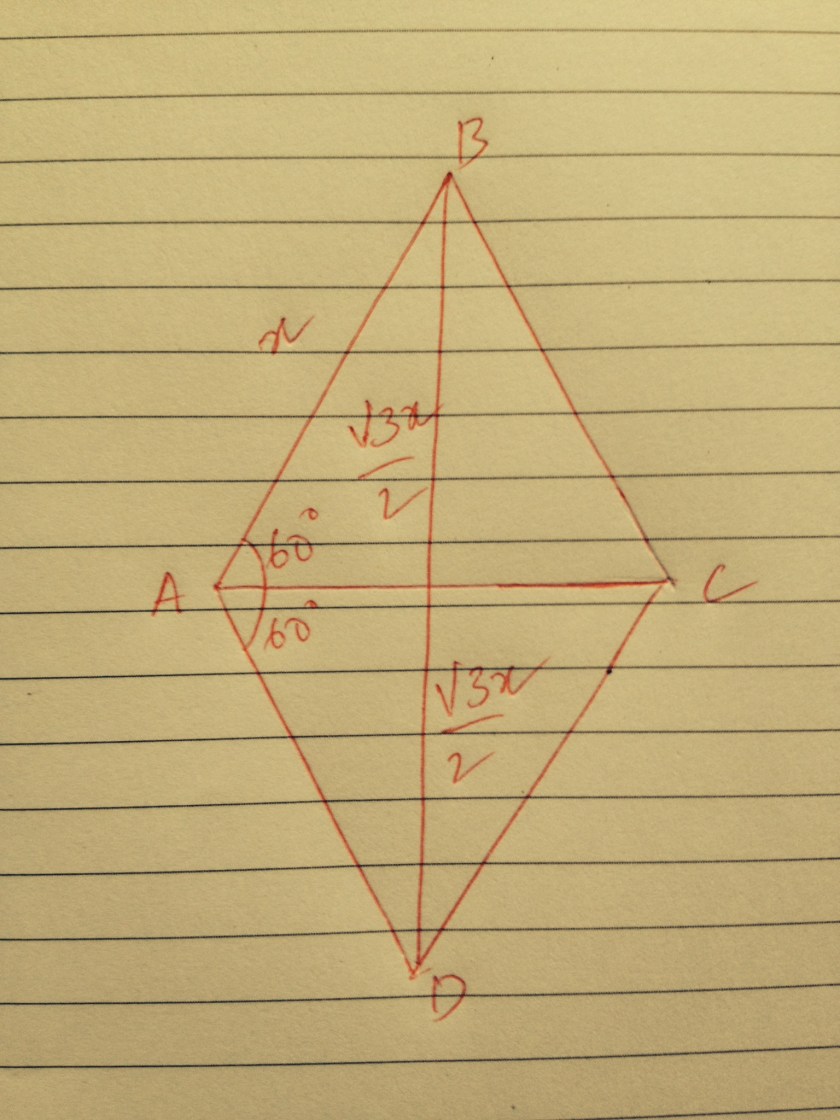 B
x
√3x
2
60°
A
C
60°
√3x
2
D